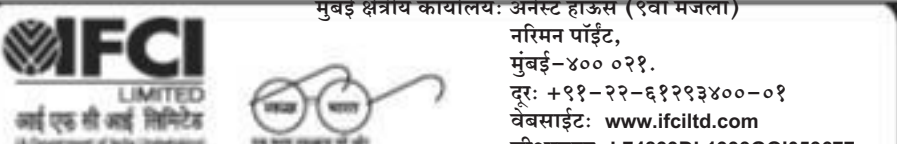 मुंबई क्षेत्रीय कार्यालय: अर्नेस्ट हाऊस (९वा मजला)
IFCI
LIMITED
आई एफ सी आई लिमिटेड
स्वच्छ भारत
नरिमन पॉईंट,
मुंबई-४०० ०२१.
दूर: +९१-२२-६१२९३४००-०१
वेबसाईट: www.ifciltd.com